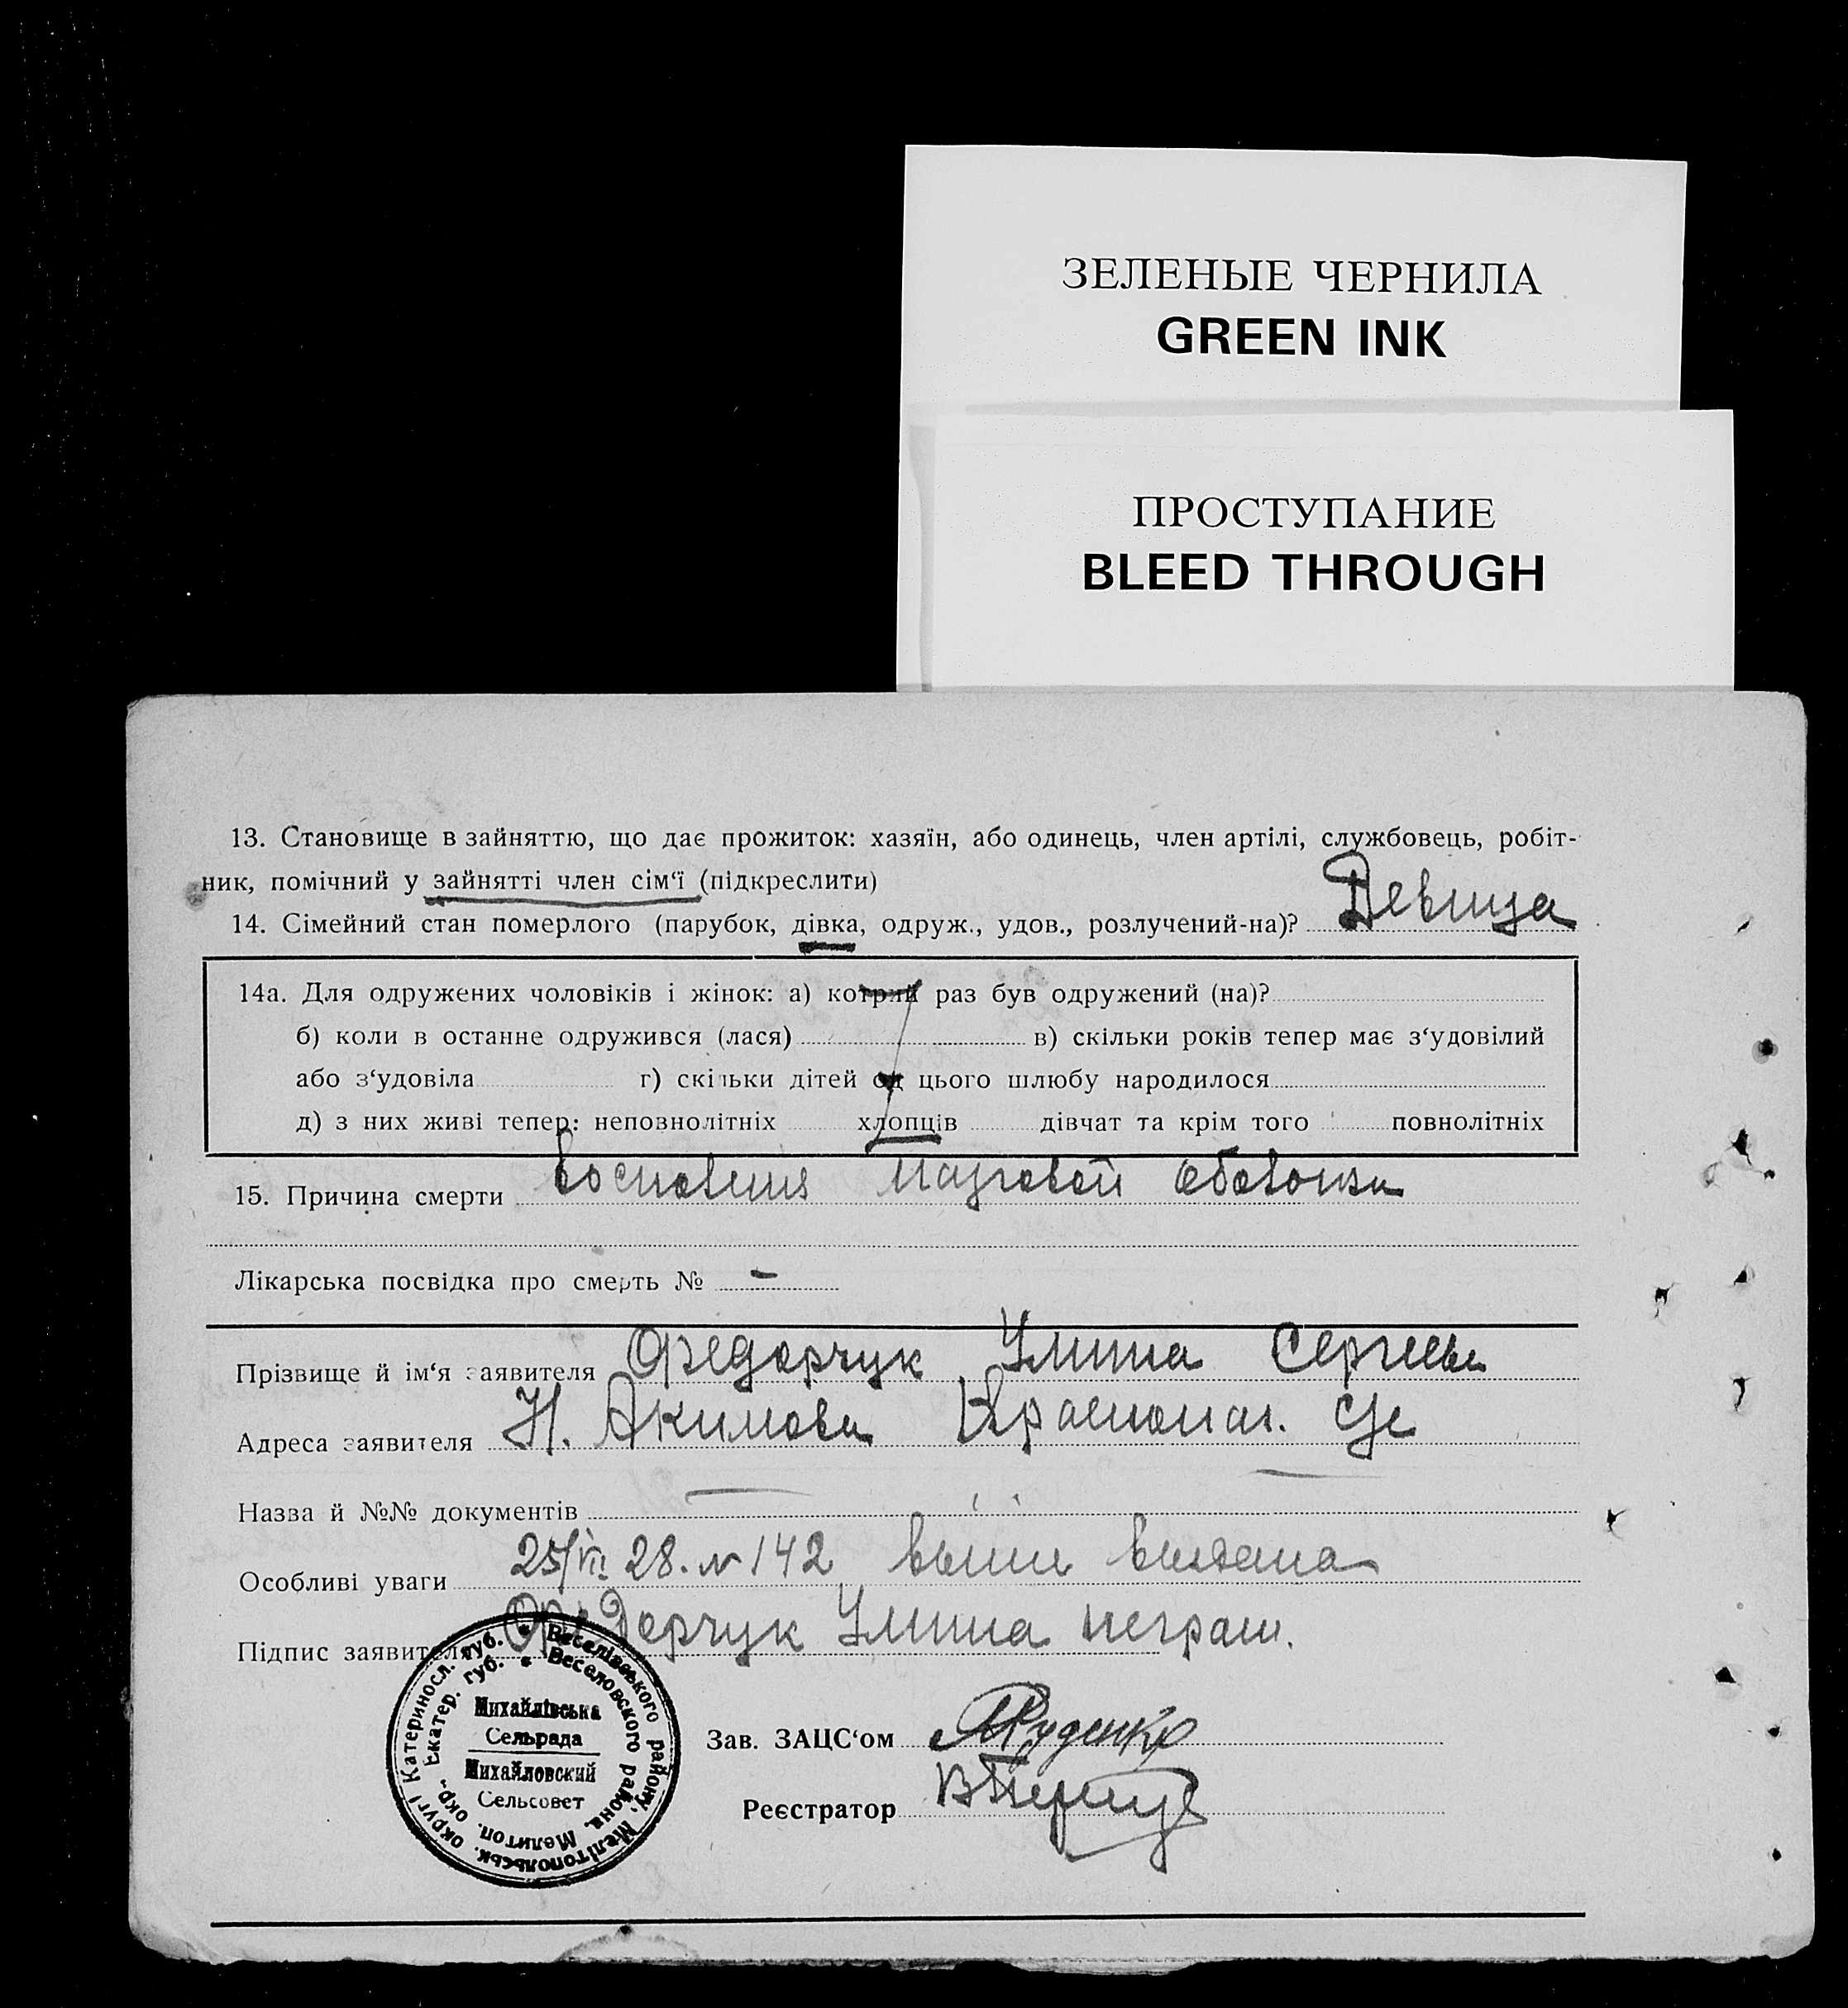 ЗЕЛЕНЫЕ ЧЕРНИЛА
GREEN INK
ПРОСТУПАНИЕ
BLEED THROUGH
13. Становище в зайняттю, що дає прожиток: хазяїн, або одинець, член артілі, службовець, робіт-
ник, помічний у зайнятті член сім‘ї (підкреслити)
14. Сімейний стан померлого (парубок, дівка, одруж., удов., розлучений-на)? Девица
14а. Для одружених чоловіків і жінок: а) котрий раз був одружений (на)?
б) коли в останне одружився (лася) в) скільки років тепер має з‘удовілий
або з‘удовіла г) скільки дітей од цього шлюбу народилося
д) з них живі тепер: неповнолітніх хлопців дівчат та крім того повнолітніх
15. Причина смерти Воспаления Мозговой оболочки
Лікарська посвідка про смерть № —
Прізвище й ім‘я заявителя Федорчук Улита Сергеевн
Адреса заявителя Н. Акимовка
Назва й №№ документів —
Особливі уваги 25/VII 28. № 142 выпис выдана
Підпис заявителя Федорчук Улита неграм.
Катериносл. губ. * Веселівського району, Мелітопольськ. округи
Екатер. губ. * Веселовского района, Мелитоп. окр.
Михайлівська
Сельрада
Михайловский
Сельсовет
Зав. ЗАЦС‘ом Руденко
Реєстратор